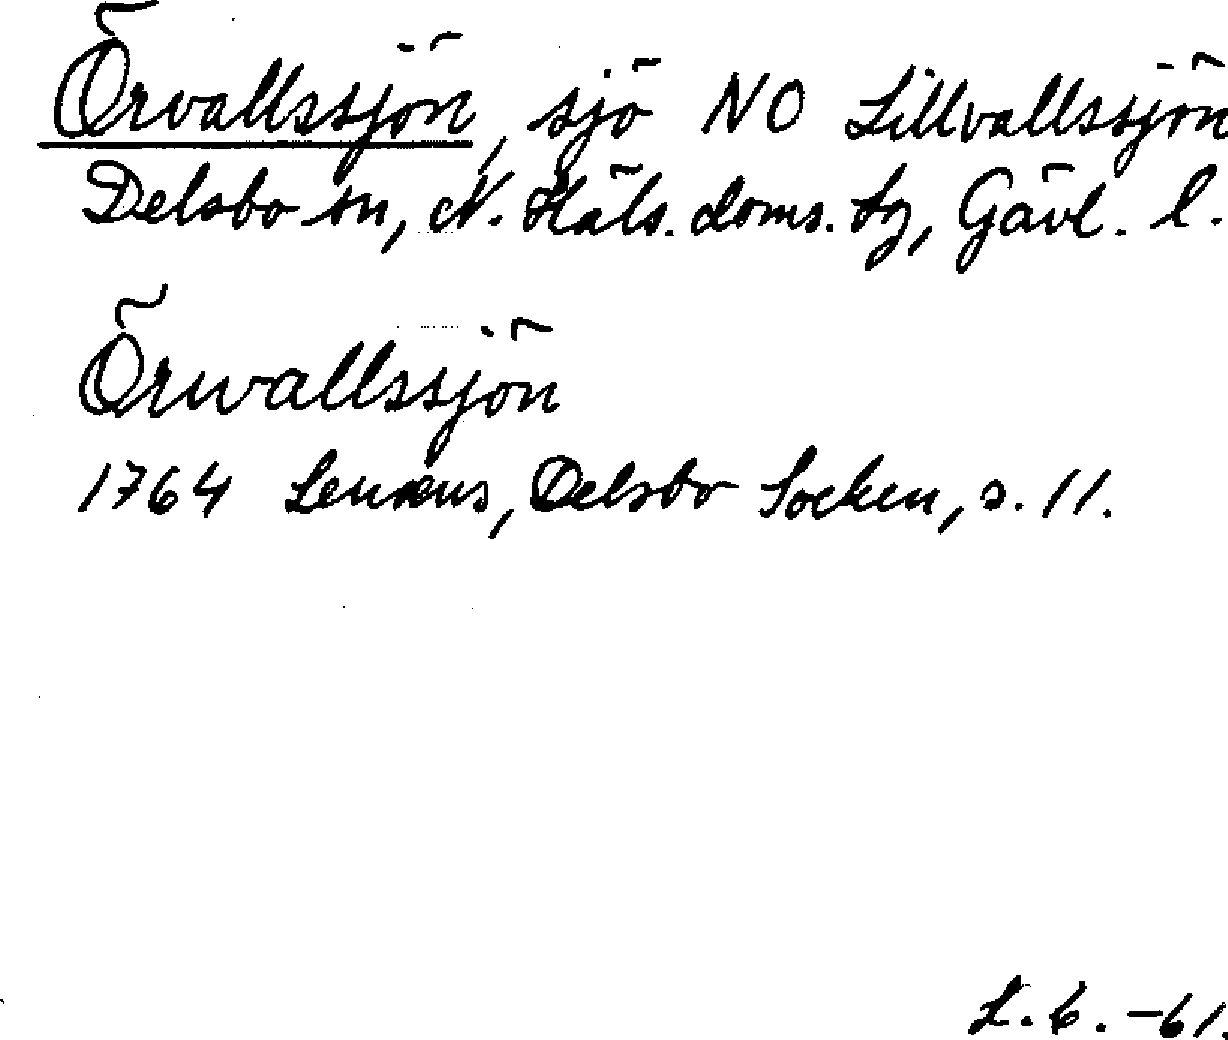 Örvallssjön, sjö NO Lillvallssjön
Delsbo sn, N. Häls. doms. tg, Gävl. l.
Örwallssjön
1764 Lenæus, Delsbo Socken, s. 11.
L. 6. -61.